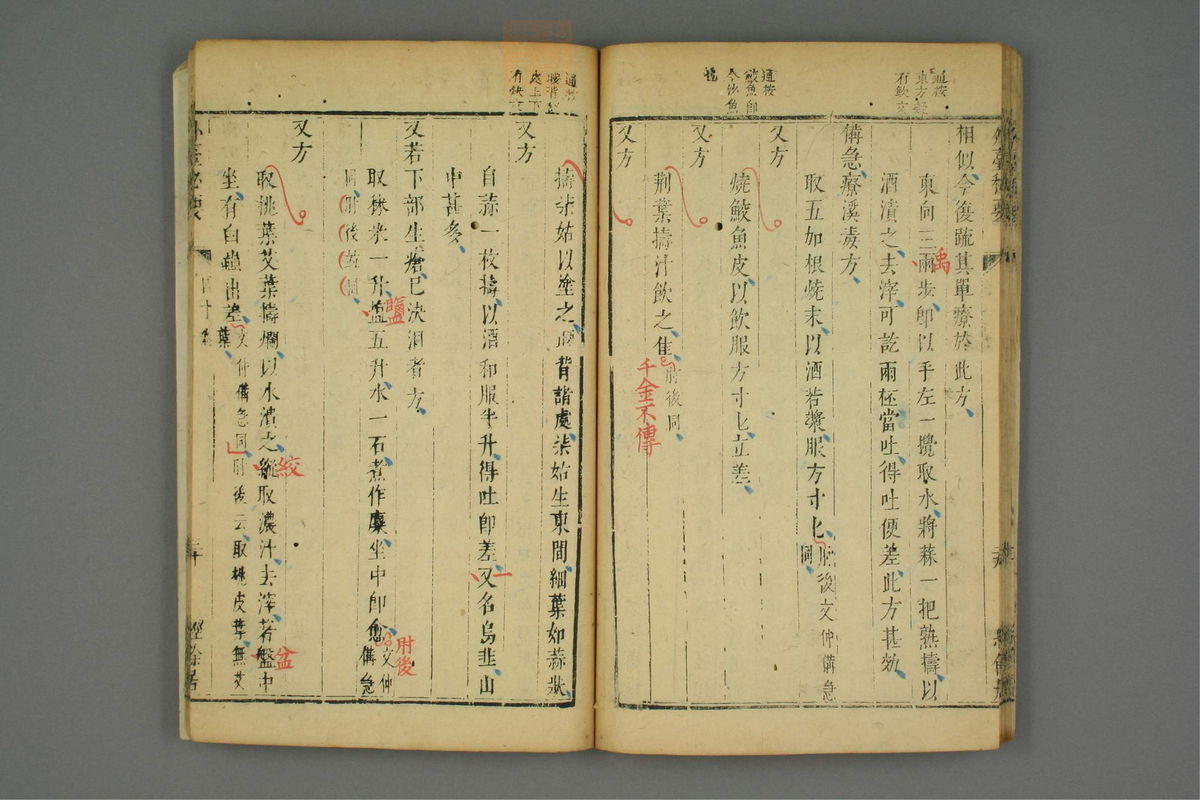 通按
東方
有缺文
通按
鮫魚即
今沙魚
相似今復疏其單療於此方
東向三兩步即以手左一攪取水將蒜一把熟擣以
禹
酒漬之去滓可訖兩柸當吐得吐便差此方甚効
備急療溪毒方
取五加根燒末以酒若漿服方寸匕肘後文仲備急同
又方
燒鮫魚皮以飲服方寸匕立差
又方
荆葉擣汁飲之佳肘後同
千金不傳
又方
通按
處上下
有缺文
擣柒姑以塗之背諸處柒姑生東間細葉如蒜狀
又方
自蒜一枚擣以酒和服半升得吐即差又名烏韭山
一
中甚多
又若下部生瘡已決洞者方
取秫米一升鹽五升水一石煮作麋坐中即愈文仲備急
鹽
肘後
同肘後並同
又方
取桃葉艾葉擣爛以水漬之縱取濃汁去滓若盤中
絞
盆
坐有白蟲出差文仲備急同肘後云取桃皮葉無艾
葉
外臺秘要
四十
三十
經餘居